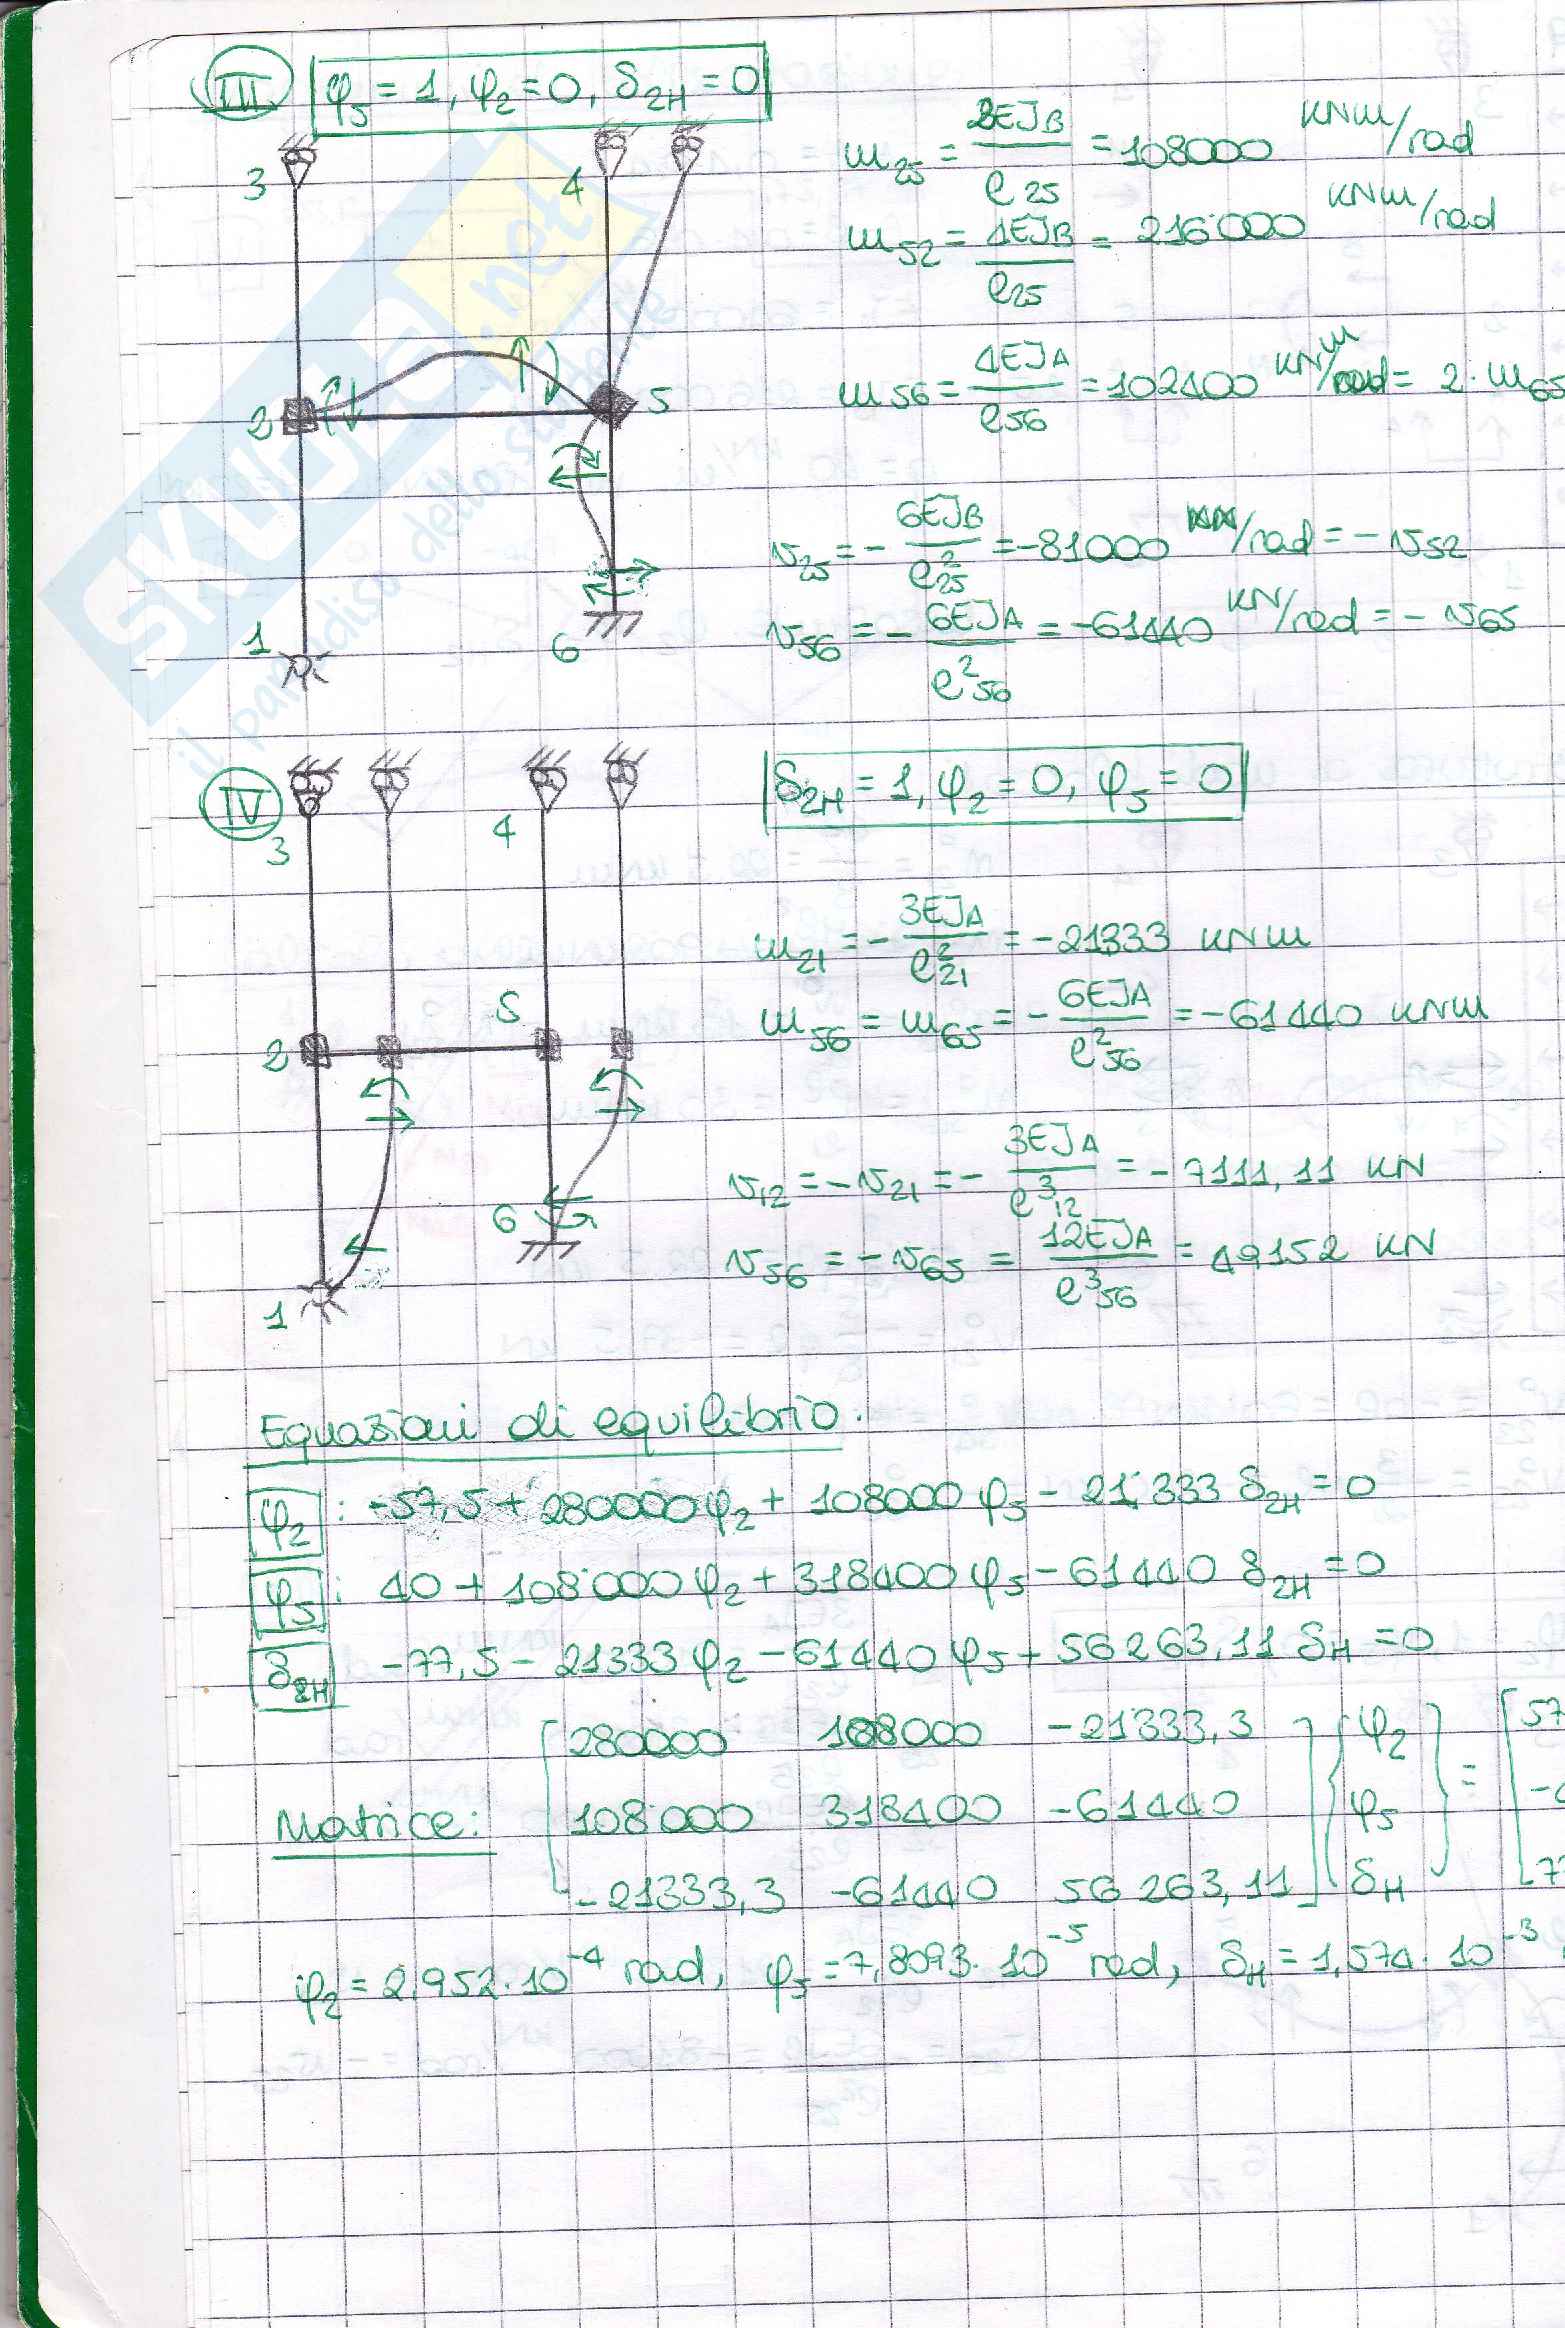 III φ₅ = 1, φ₂ = 0, δ₂H = 0
3 4
m₂₅ = 2EJB / ℓ₂₅ = 108000 KNm/rad
m₅₂ = 4EJB / ℓ₂₅ = 216000 KNm/rad
2 5
m₅₆ = 4EJA / ℓ₅₆ = 102400 KNm/rad = 2·m₆₅
v₂₅ = - 6EJB / ℓ²₂₅ = -81000 /rad = - v₅₂
1 6
v₅₆ = - 6EJA / ℓ²₅₆ = -61440 KN/rad = - v₆₅
SKUOLA.net
il paradiso dello studente
IV δ₂H = 1, φ₂ = 0, φ₅ = 0
3 4
m₂₁ = - 3EJA / ℓ²₂₁ = -21333 KNm
2 5
m₅₆ = m₆₅ = - 6EJA / ℓ²₅₆ = -61440 KNm
v₁₂ = -v₂₁ = - 3EJA / ℓ³₁₂ = -7111,11 KN
1 6
v₅₆ = -v₆₅ = 12EJA / ℓ³₅₆ = 49152 KN
Equazioni di equilibrio:
φ₂ : -57,5 + 280000φ₂ + 108000φ₅ - 21'333 δ₂H = 0
φ₅ : 40 + 108'000φ₂ + 318400φ₅ - 61440 δ₂H = 0
δ₂H -77,5 - 21333φ₂ - 61440φ₅ + 56263,11 δH = 0
280000 108000 -21333,3 φ₂ 57
Matrice: 108'000 318400 -61440 φ₅ =
-21333,3 -61440 56263,11 δH 7
φ₂ = 2,952·10⁻⁴ rad, φ₅ = 7,8093·10⁻⁵ rad, δH = 1,574·10⁻³